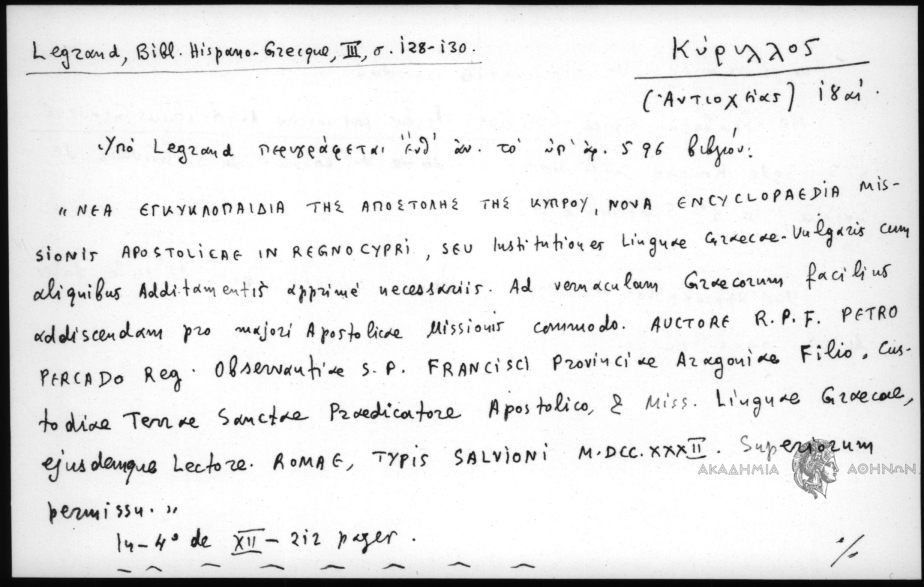 Legrand, Bibl. Hispano-Grecque, III, σ. 128-130.
Κύριλλος
(Ἀντιοχείας) 18 αἰ.
Ὑπὸ Legrand περιγράφεται ἐνθ' ἀν. τὸ ὑπ' ἀρ. 596 βιβλίον:
" ΝΕΑ ΕΓΚΥΚΛΟΠΑΙΔΙΑ ΤΗΣ ΑΠΟΣΤΟΛΗΣ ΤΗΣ ΚΥΠΡΟΥ, NOVA ENCYCLOPAEDIA MIS-
SIONIS APOSTOLICAE IN REGNO CYPRI, SEU Institutiones Linguae Graecae-Vulgaris cum
aliquibus Additamentis apprimé necessariis. Ad vernaculam Graecorum facilius
addiscendam pro majori Apostolicae Missionis commodo. AUCTORE R.P.F. PETRO
PERCADO Reg. Observantiae S.P. FRANCISCI Provinciae Aragoniae Filio, Cus-
todiae Terrae Sanctae Praedicatore Apostolico, & Miss. Linguae Graecae,
ejusdemque Lectore. ROMAE, TYPIS SALVIONI M.DCC.XXXII. Superiorum
permissu. "
In-4° de XII-212 pages.
ΑΚΑΔΗΜΙΑ ΑΘΗΝΩΝ
%